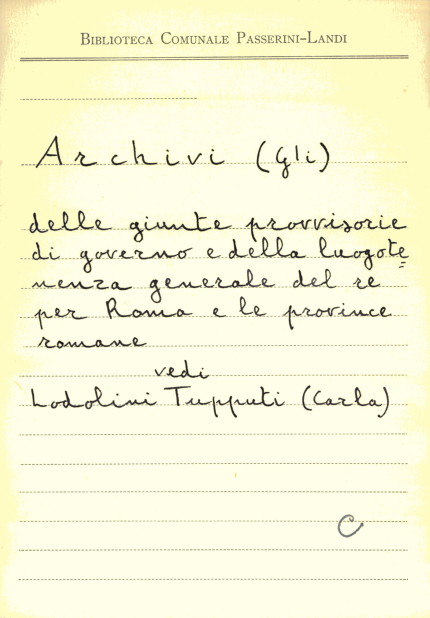 BIBLIOTECA COMUNALE PASSERINI-LANDI
Archivi (Gli)
delle giunte provvisorie
di governo e della luogote=
nenza generale del re
per Roma e le province
romane
vedi
Lodolini Tupputi (Carla)
C